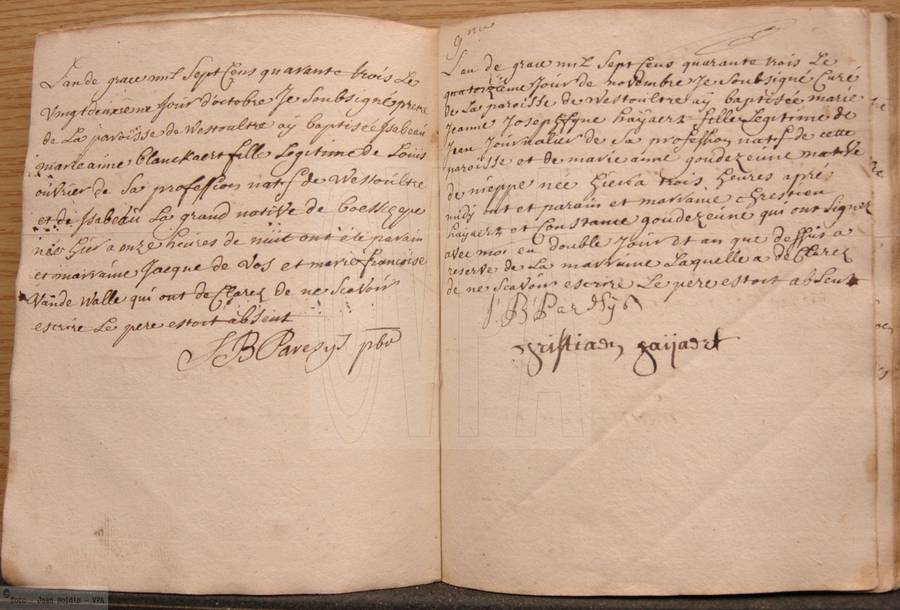 Lan de grace mil Sept Cens quarante trois Le
Vingt deuxieme Jour d'octobre Je Soubsigné pretre
de La paroisse de Westoultre aÿ baptisée Isabeau
marie aimé blanckaert fille Legitime de Louis
ouvrier de Sa profession natif de Westoultre
et de Isabeau La grand native de boeschepe
née hier a onze heures de nuit ont été parain
et marraine Jacque de Vos et marie francoise
Vande Walle qui ont declarez de ne Scavoir
escrire Le pere estoit absent
J B Paresÿs pbr
9me
Lan de grace mil Sept Cens quarante trois Le
quatorzième Jour de novembre Je Soubsigné Curé
de La paroisse de Westoultre aÿ baptisée marie
Jeanne Josephfine haÿaert fille Legitime de
Jean Journalier de Sa profession natif de cette
paroisse et de marie anne goudezeune native
de nieppe née hier a trois heures apres
midÿ ont et parain et marraine Chrestien
haÿaert et Constance goudezeune qui ont Signez
avec moi en double Jour et an que dessus a
reserve de La marraine Laquelle a declarez
de ne Scavoir escrire Le pere estoit absent
J B Paresÿs
christiaen haijaert